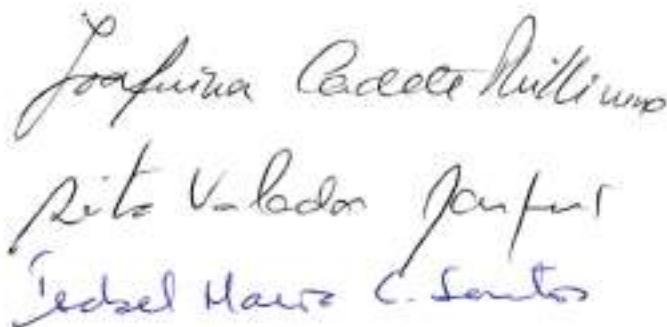 Joaquina Cadete Phillimore
Rita Valadas
Isabel Maria C. Santos